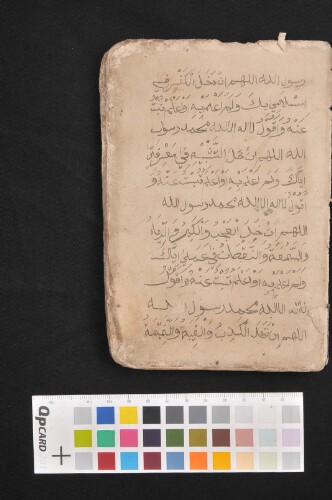 رسول الله اللهم ان دخل الكفر في
اسلامي بك ولم اعلم به او علمت تبت
عنه واقول لا اله الا الله محمد رسول
الله اللهم ان دخل الشبه في معرفتي
اياك ولم اعلم به او اعلم تبت عنه و
اقول لا اله الا الله محمد رسول الله
اللهم ان دخل العجب والكبر والرياء
والسمعة والنقصان في عملي اياك
ولم اعلم به او اعلم تبت عنه واقول
لا اله الا الله محمد رسول الله
اللهم ان دخل الكذب والغيبة والنميمة
QP CARD